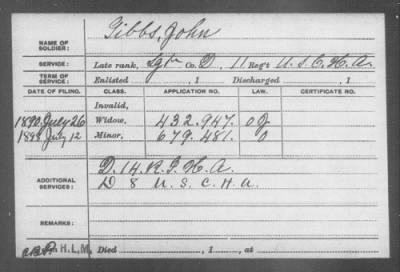 Gibbs, John
NAME OF SOLDIER:
SERVICE: Late rank, Sgt Co. D, 11 Reg't U.S.C.H.A.
TERM OF SERVICE: Enlisted , 1 Discharged , 1
DATE OF FILING. CLASS. APPLICATION NO. LAW. CERTIFICATE NO.
Invalid,
1890 July 26 Widow, 432.947. O J.
1898 July 12 Minor, 679.481. O
D. 14. R.I. H.A.
ADDITIONAL SERVICES: D 8 U.S.C.H.A.
REMARKS:
H.L.M. Died , 1 , at